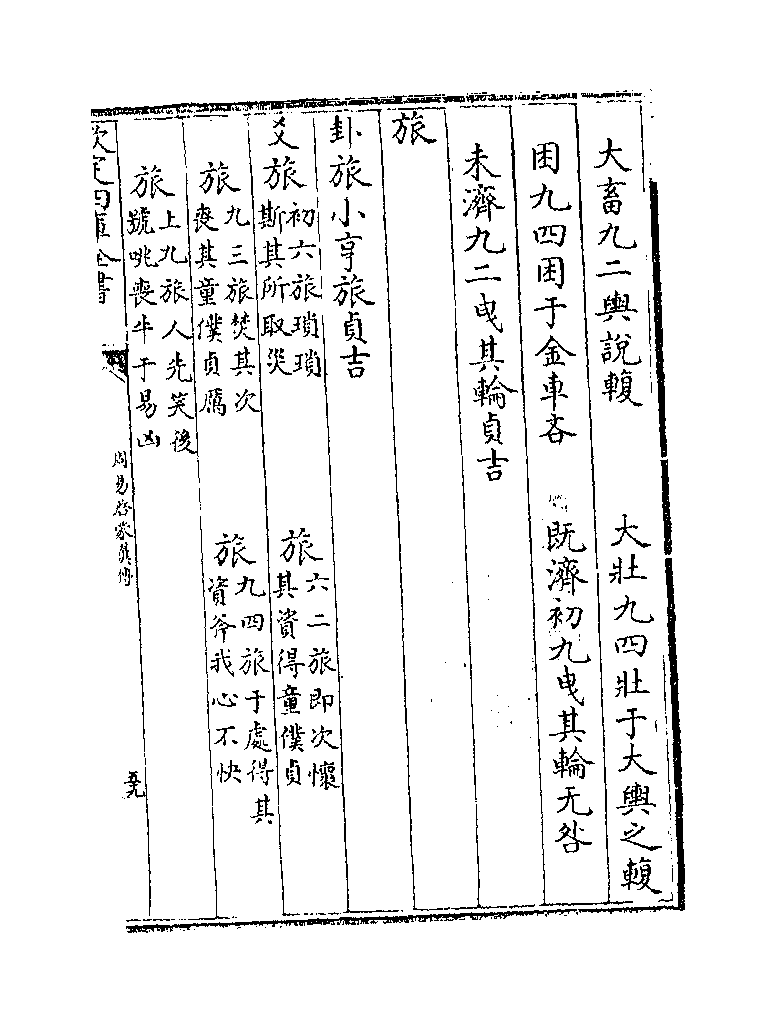 大畜九二輿說輹　大壯九四壯于大輿之輹
困九四困于金車吝　既濟初九曳其輪无咎
未濟九二曳其輪貞吉
旅
卦旅小亨旅貞吉
爻旅初六旅瑣瑣斯其所取災　旅六二旅即次懷其資得童僕貞
旅九三旅焚其次喪其童僕貞厲　旅九四旅于處得其資斧我心不快
旅上九旅人先笑後號咷喪牛于易凶
欽定四庫全書
周易啓蒙翼傳
五九